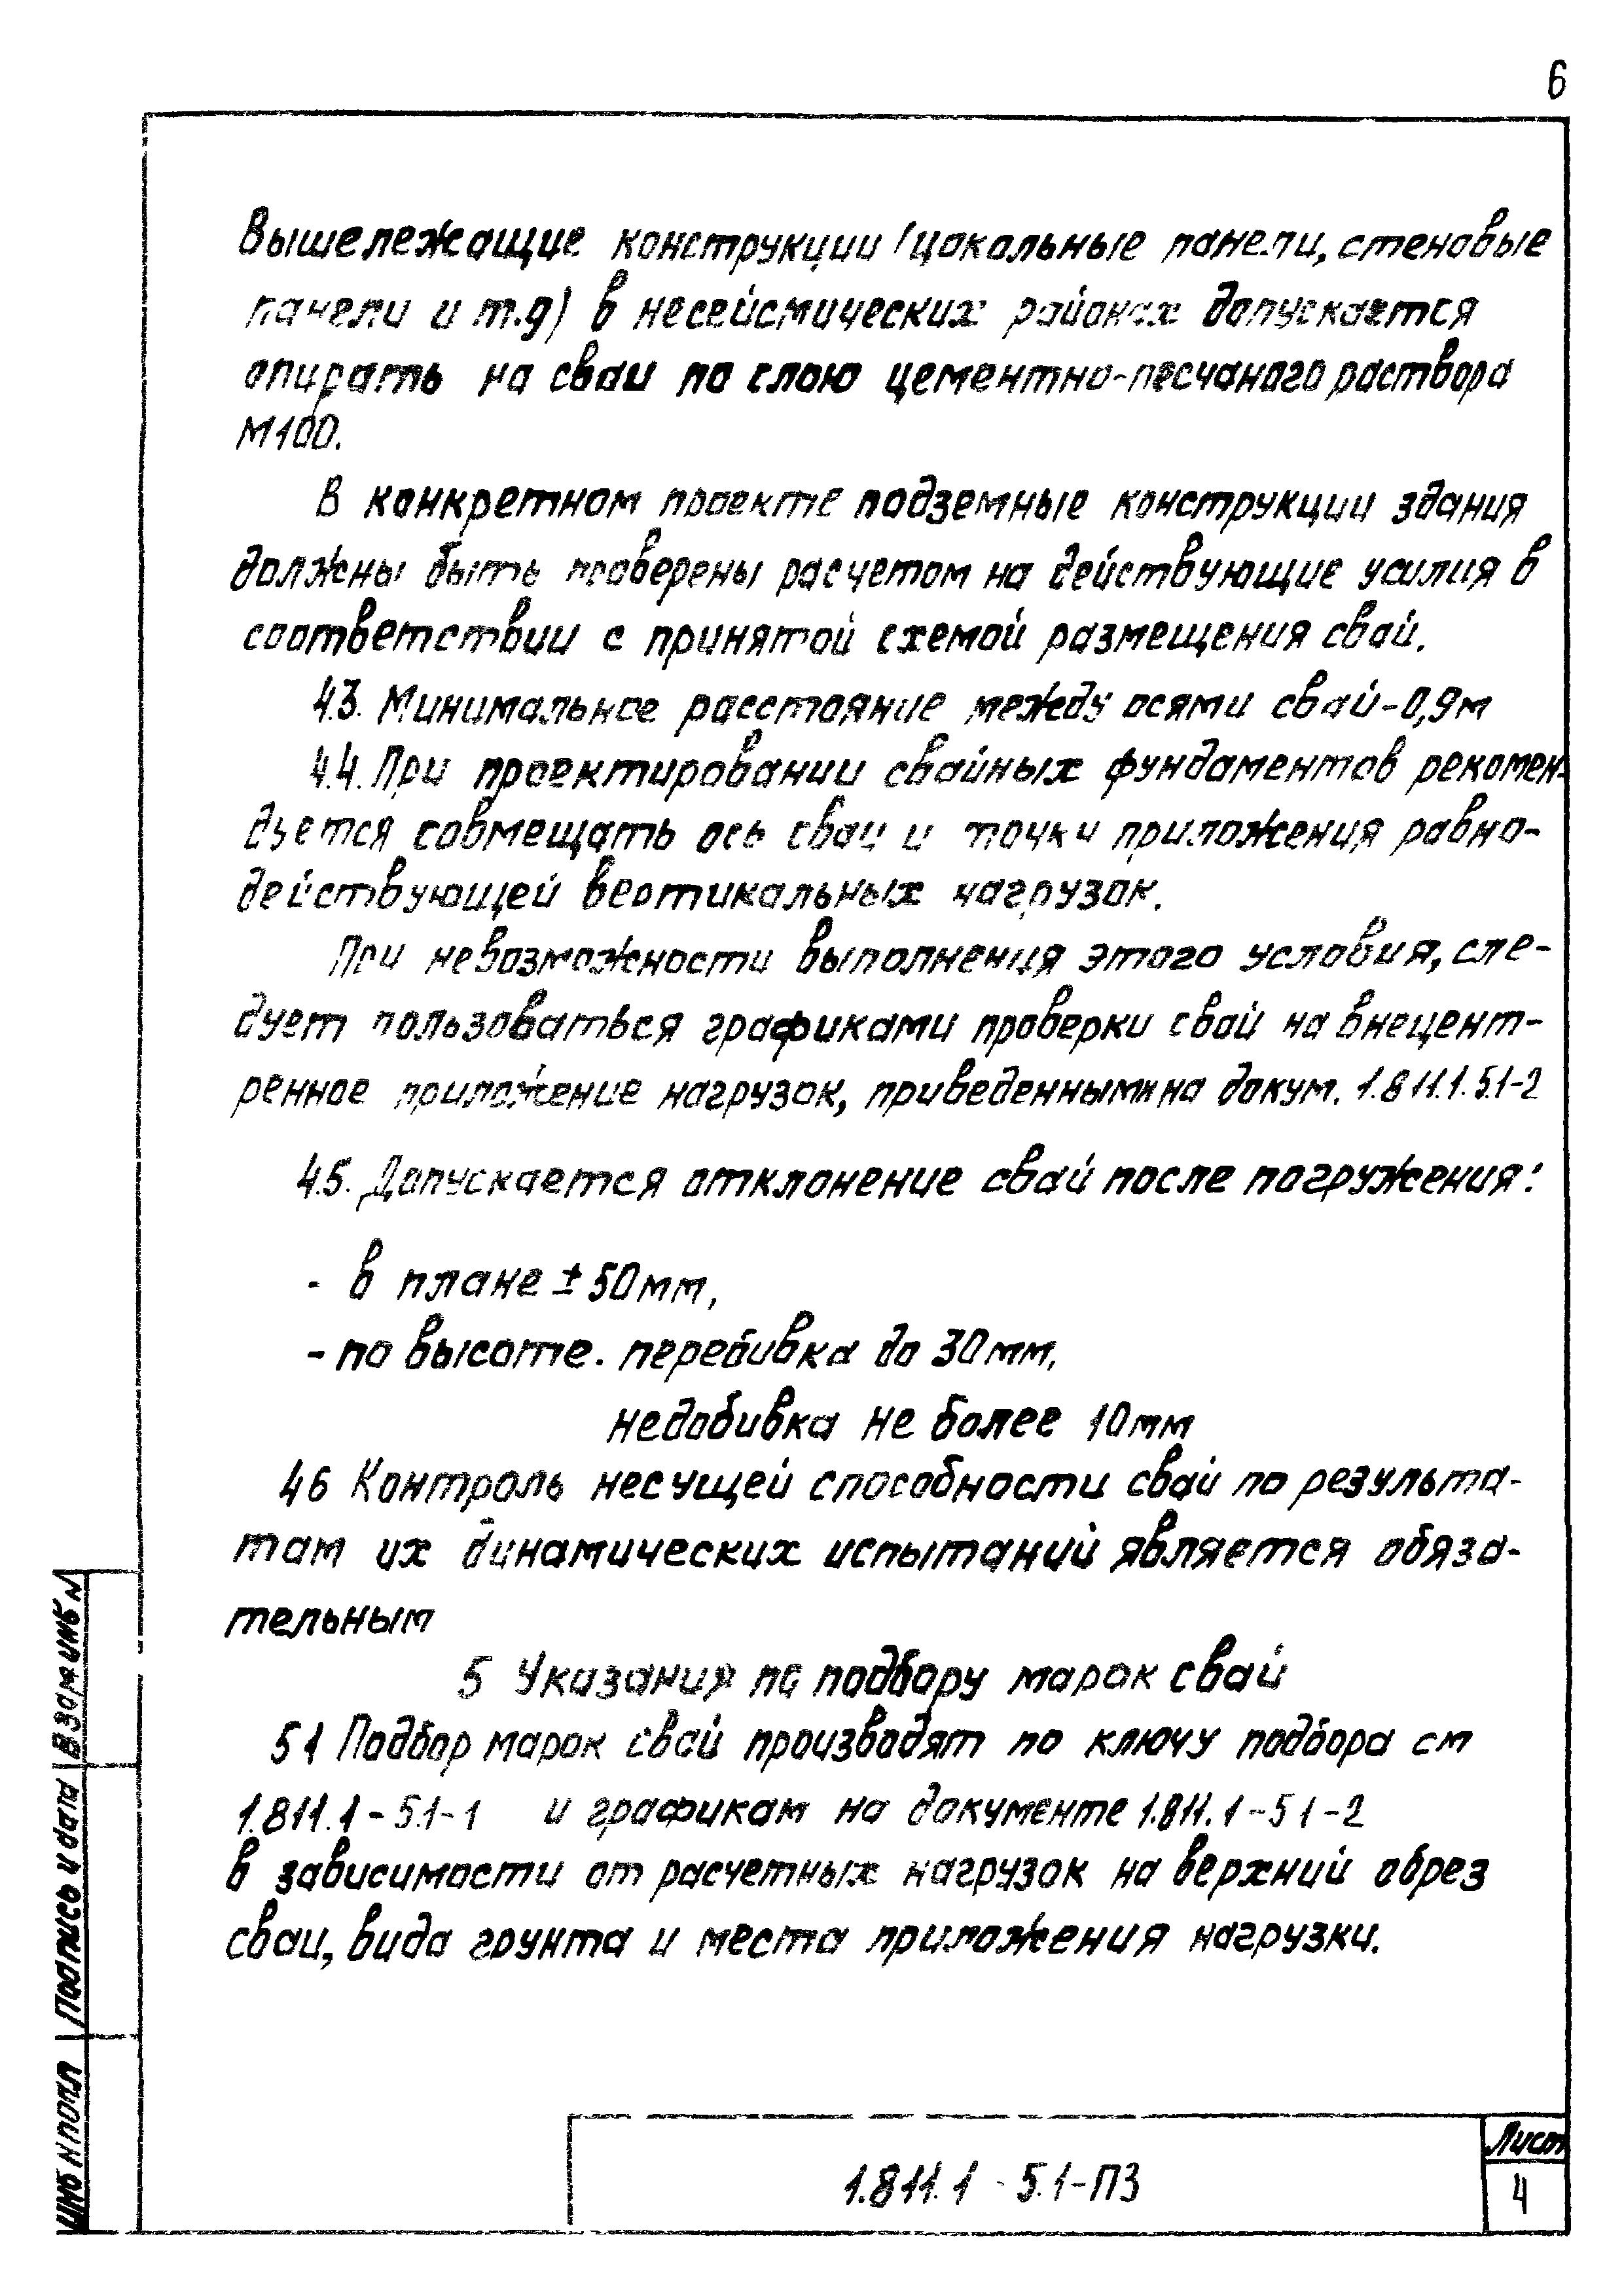 6
Вышележащие конструкции (цокольные панели, стеновые
панели и т.д) в несейсмических районах допускается
опирать на сваи по слою цементно-песчаного раствора
М100.
В конкретном проекте подземные конструкции здания
должны быть проверены расчетом на действующие усилия в
соответствии с принятой схемой размещения свай.
4.3. Минимальное расстояние между осями свай-0,9м
4.4. При проектировании свайных фундаментов рекомен-
дуется совмещать ось сваи и точки приложения равно-
действующей вертикальных нагрузок.
При невозможности выполнения этого условия, сле-
дует пользоваться графиками проверки свай на внецент-
ренное приложение нагрузок, приведенными на докум. 1.811.1.5.1-2
4.5. Допускается отклонение свай после погружения:
- в плане ±50мм,
- по высоте. перебивка до 30мм,
недобивка не более 10мм
46 Контроль несущей способности свай по результа-
там их динамических испытаний является обяза-
тельным
5 Указания по подбору марок свай
51 Подбор марок свай производят по ключу подбора см
1.811.1-5.1-1 и графикам на документе 1.811.1-51-2
в зависимости от расчетных нагрузок на верхний обрез
сваи, вида грунта и места приложения нагрузки.
Взам инв N
Подпись и дата
Инв N подл
1.811.1-5.1-ПЗ
Лист
4